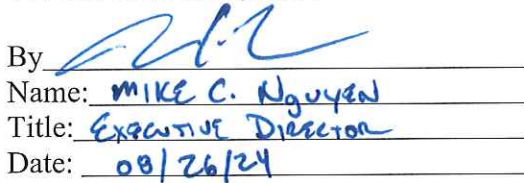 By
Name: MIKE C. NguyEN
Title: EXECUTIVE DIRECTOR
Date: 08/26/24